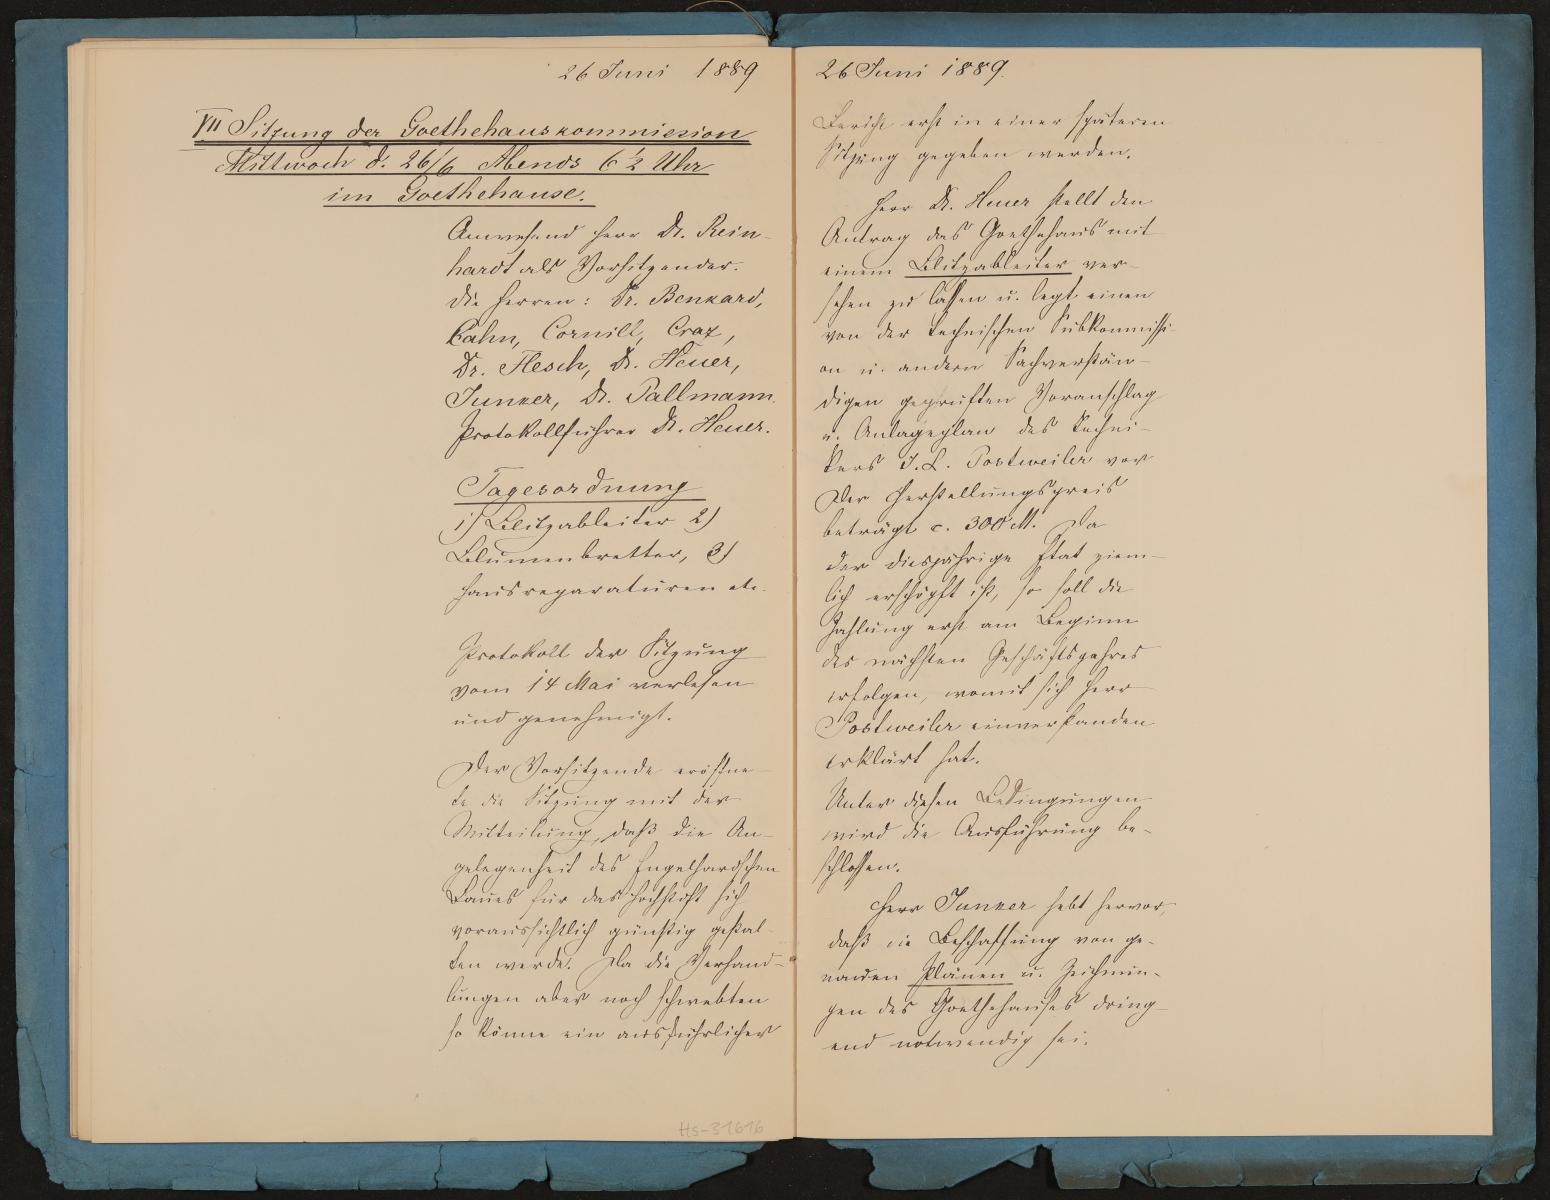 26 Juni 1889
VII Sitzung der Goethehauskommission
Mittwoch d. 26/6 Abends 6 1/2 Uhr
im Goethehause.
Anwesend Herr Dr. Rein-
hardt als Vorsitzender.
Die Herren: Dr. Benkard,
Cahn, Cornill, Craz,
Dr. Flesch, Dr. Heuer,
Junker, Dr. Pallmann.
Protokollführer Dr. Heuer.
Tagesordnung
1) Blitzableiter 2)
Blumenbretter, 3)
Hausreparaturen etc.
Protokoll der Sitzung
vom 14 Mai verlesen
und genehmigt.
Der Vorsitzende eröffne-
te die Sitzung mit der
Mitteilung, daß die An-
gelegenheit des Engelhardschen
Baues für das Hochstift sich
voraussichtlich günstig gestal-
ten werde. Da die Verhand-
lungen aber noch schwebten
so könne ein ausführlicher
Hs-31616
26 Juni 1889.
Bericht erst in einer späteren
Sitzung gegeben werden.
Herr Dr. Heuer stellt den
Antrag das Goethehaus mit
einem Blitzableiter ver-
sehen zu lassen u. legt einen
von der technischen Subkommissi-
on u. andern Sachverstän-
digen geprüften Voranschlag
u. Anlageplan des Techni-
kers J. L. Postweiler vor
Der Herstellungspreis
beträgt c. 300 M. Da
der diesjährige Etat ziem-
lich erschöpft ist, so soll die
Zahlung erst am Beginn
des nächsten Geschäftsjahres
erfolgen, womit sich Herr
Postweiler einverstanden
erklärt hat.
Unter diesen Bedingungen
wird die Ausführung be-
schlossen.
Herr Junker hebt hervor,
daß die Beschaffung von ge-
nauen Plänen u. Zeichnun-
gen des Goethehauses dring-
end notwendig sei.